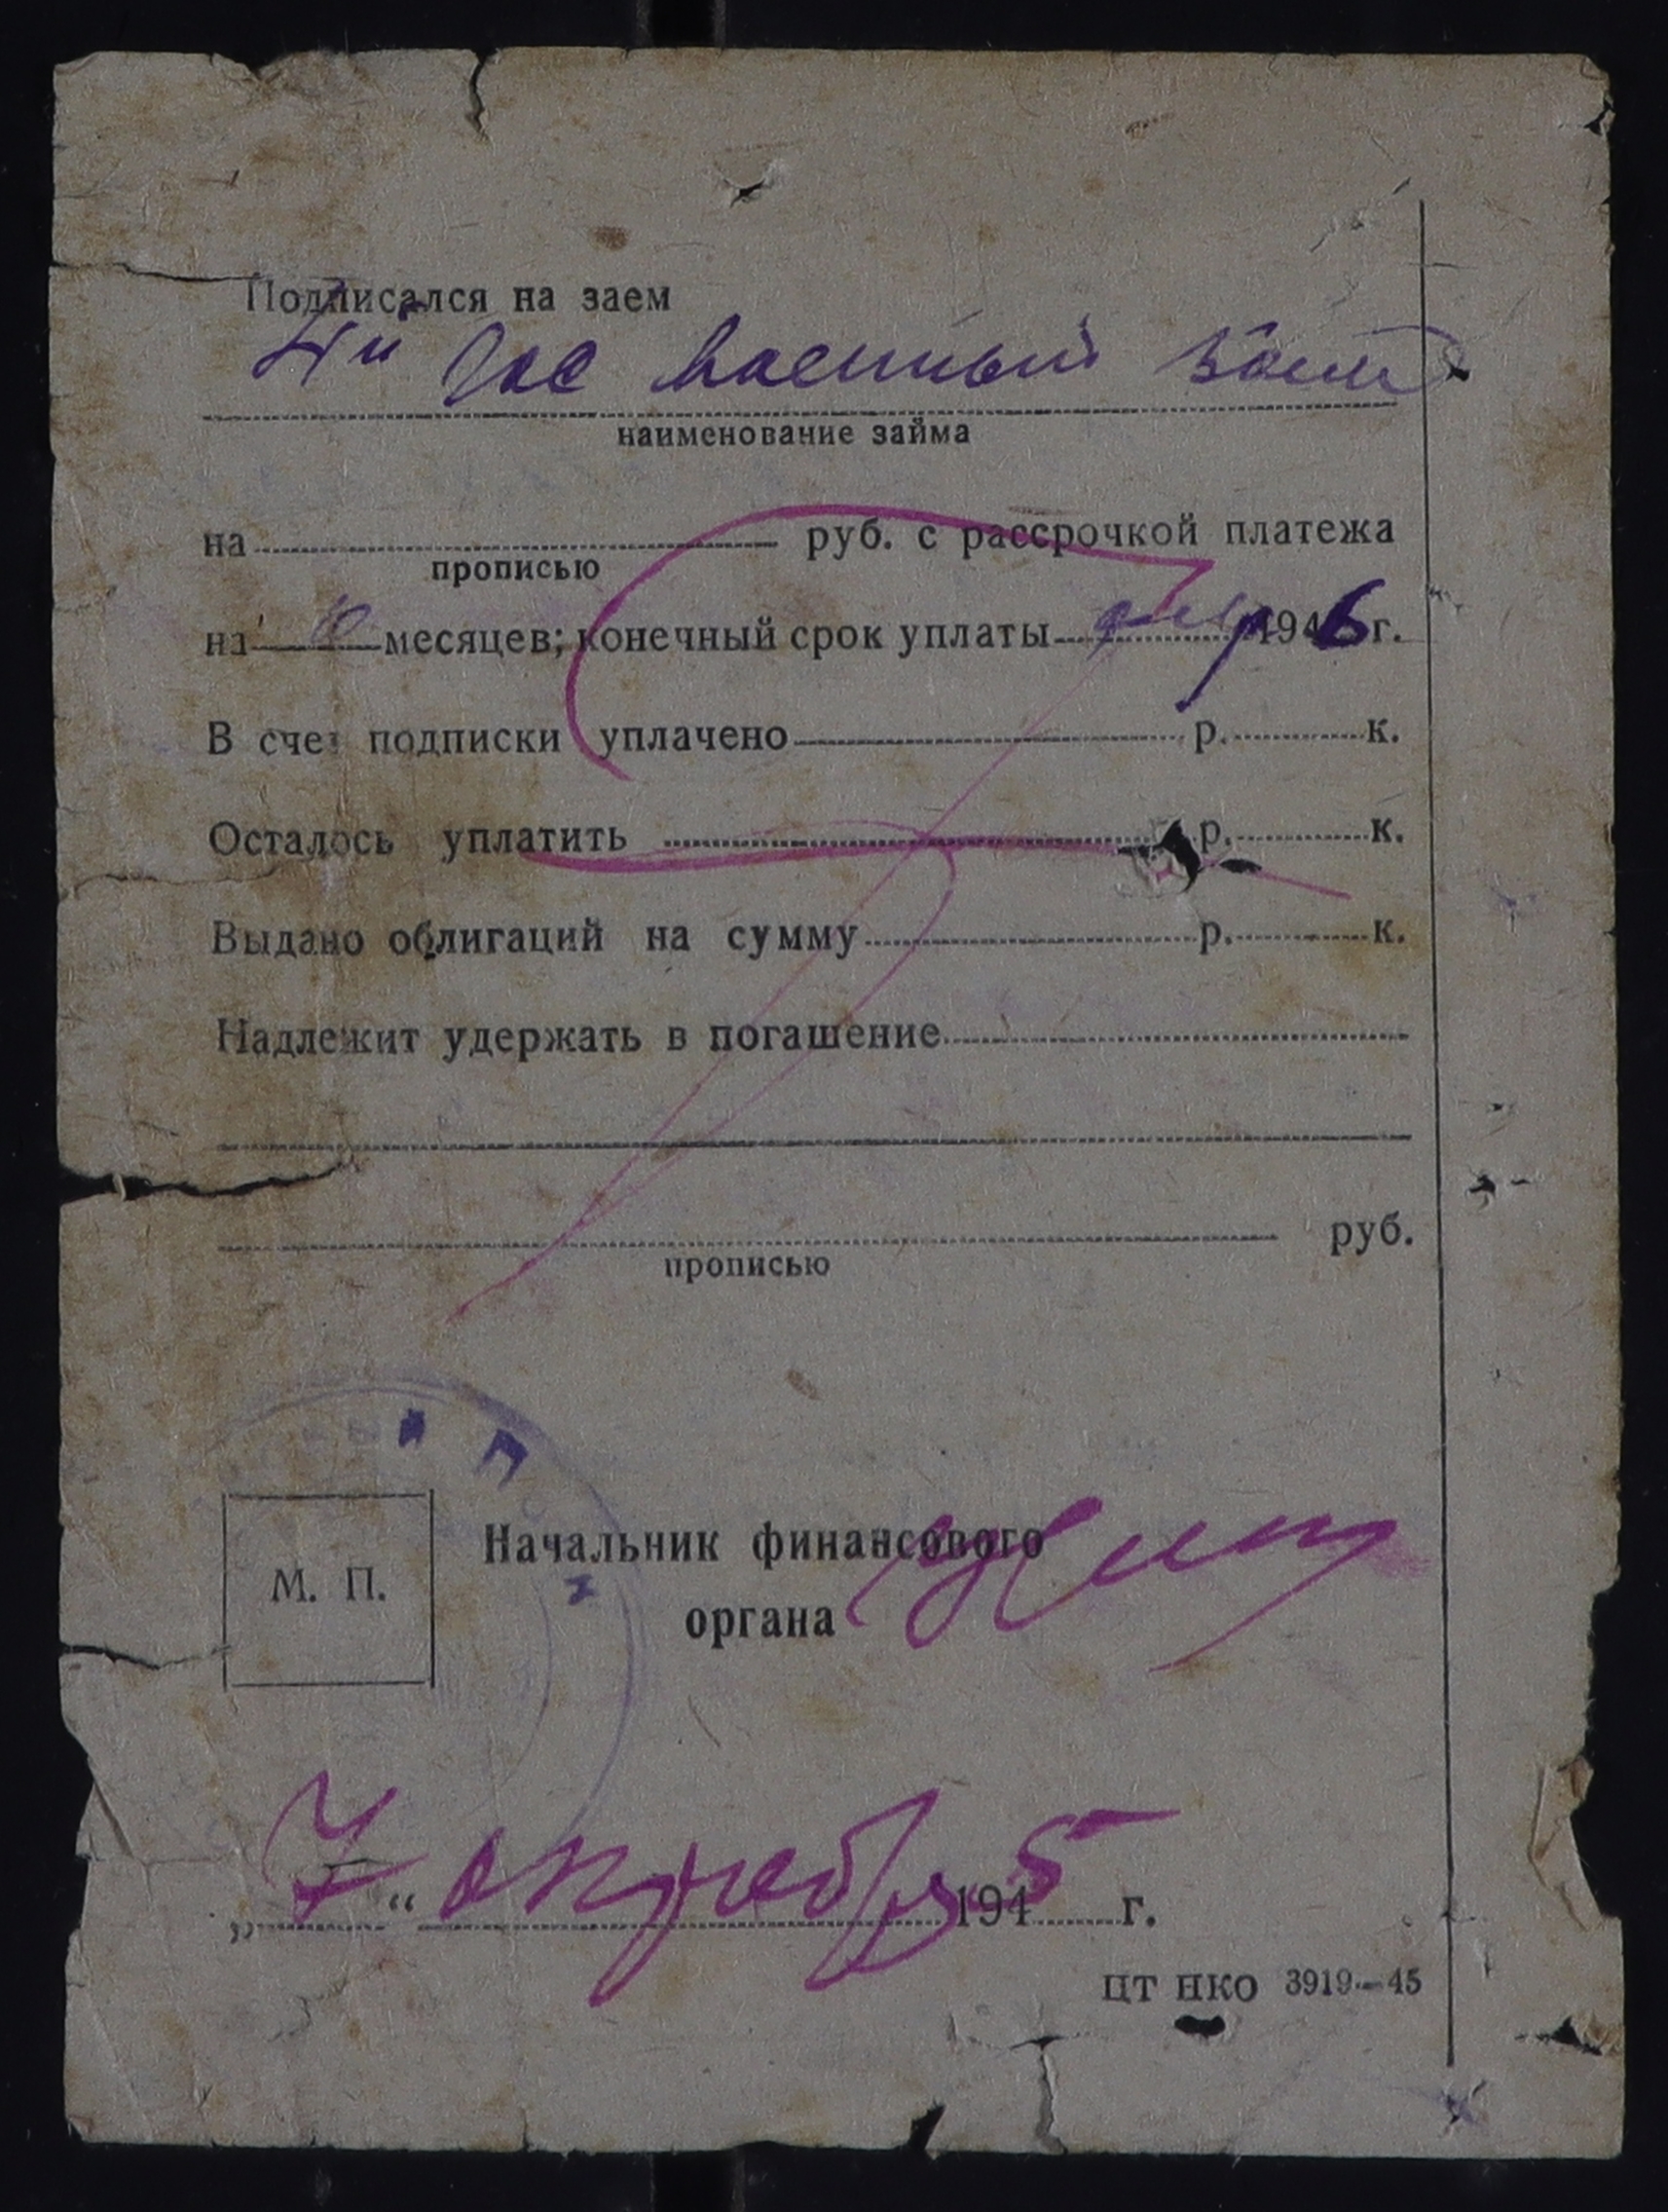 Подписался на заем
4й Гос военный заем
наименование займа
на руб. с рассрочкой платежа
прописью
на месяцев; конечный срок уплаты 1946 г.
В счет подписки уплачено р. к.
Осталось уплатить р. к.
Выдано облигаций на сумму р. к.
Надлежит удержать в погашение
руб.
прописью
М. П.
Начальник финансового
органа
„7“ октября 1945 г.
ЦТ НКО 3919—45